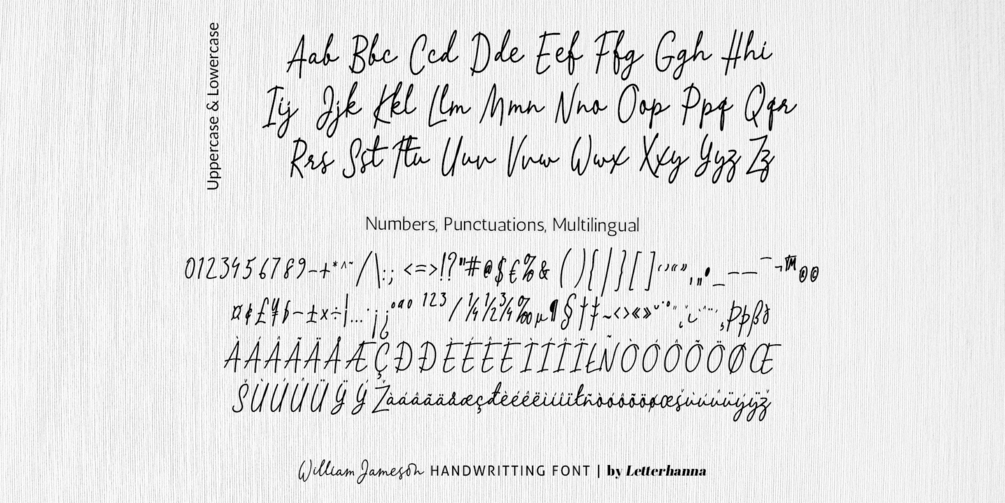 Uppercase & Lowercase
Aab Bbc Ccd Dde Eef Ffg Ggh Hhi
Iij Jjk Kkl Llm Mmn Nno Oop Ppq Qqr
Rrs Sst Ttu Uuv Vvw Wwx Xxy Yyz Zz
Numbers, Punctuations, Multilingual
0123456789-+*^~/\:;<=>!?"#@$€%&(){|}[]‘’“”‚„•_–—¯¬™®©
¤¢£¥ƀ−±×÷¦…·¡¿°ªº123/¼½¾‰µ¶§†‡~‹›«»Þþßð
ÀÁÂÃÄÅÆÇÐĐÈÉÊËÌÍÎÏŁÑÒÓÔÕÖØŒ
ŠÙÚÛÜŸÝŽàáâãäåæçđèéêëìíîïłñòóôõöøœšùúûüýÿž
William Jameson HANDWRITTING FONT | by Letterhanna